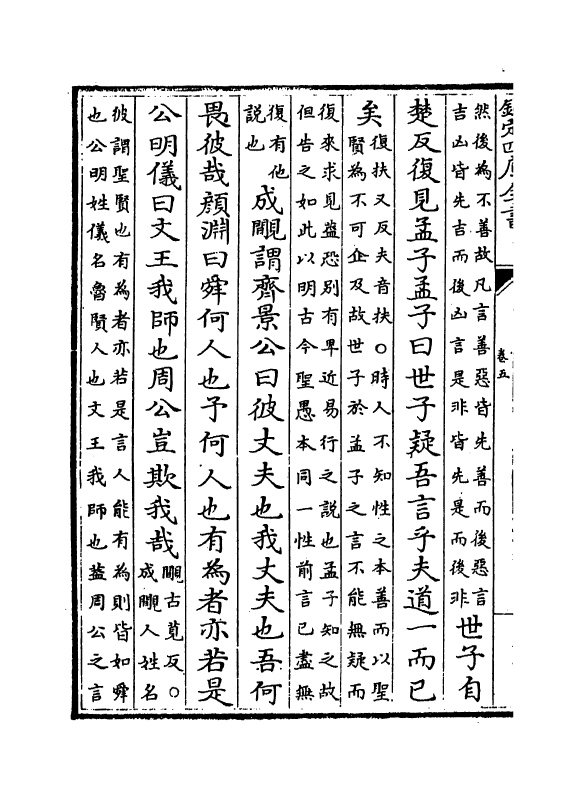 欽定四庫全書
卷五
然後為不善故凡言善惡皆先善而後惡言
吉凶皆先吉而後凶言是非皆先是而後非
世子自
楚反復見孟子孟子曰世子疑吾言乎夫道一而已
矣
復扶又反夫音扶○時人不知性之本善而以聖
賢為不可企及故世子於孟子之言不能無疑而
復來求見蓋恐別有卑近易行之説也孟子知之故
但告之如此以明古今聖愚本同一性前言已盡無
復有他
説也
成覸謂齊景公曰彼丈夫也我丈夫也吾何
畏彼哉顔淵曰舜何人也予何人也有為者亦若是
公明儀曰文王我師也周公豈欺我哉
覸古莧反○
成覸人姓名
彼謂聖賢也有為者亦若是言人能有為則皆如舜
也公明姓儀名魯賢人也文王我師也蓋周公之言